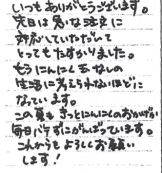 いつもありがとうございます。
先日は急な注文に
対応していただいて
とってもたすかりました。
もうにんにくまなしの
生活に考えられないほどに
なっています。
この夏もきっとにんにくのおかげか
毎日バテずにがんばっています。
これからもよろしくお願い
します!